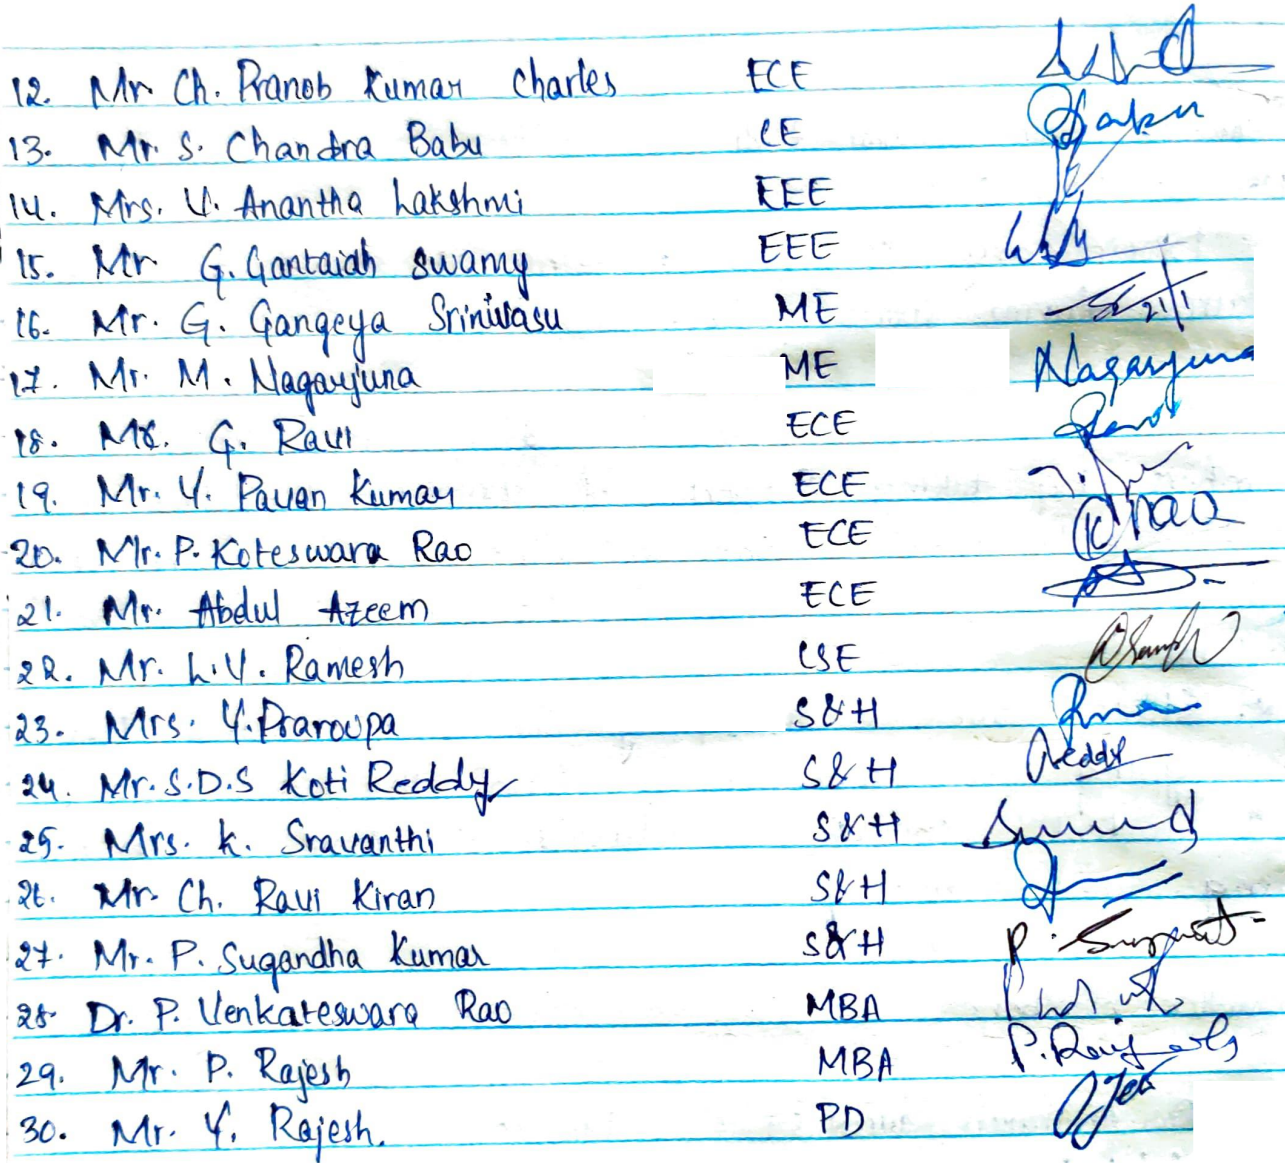 12. Mr Ch. Pranob Kumar Charles ECE
13. Mr. S. Chandra Babu CE
14. Mrs. V. Anantha Lakshmi EEE
15. Mr G. Gantaiah Swamy EEE
16. Mr. G. Gangeya Srinivasu ME 21/1
17. Mr. M. Nagarjuna ME Nagarjuna
18. Mr. G. Ravi ECE
19. Mr. Y. Pavan Kumar ECE
20. Mr. P. Koteswara Rao ECE
21. Mr. Abdul Azeem ECE
22. Mr. L.V. Ramesh CSE
23. Mrs. Y. Praroopa S&H
24. Mr. S.D.S Koti Reddy S&H Reddy
25. Mrs. K. Sravanthi S&H
26. Mr. Ch. Ravi Kiran S&H
27. Mr. P. Sugandha Kumar S&H
28. Dr. P. Venkateswara Rao MBA
29. Mr. P. Rajesh MBA
30. Mr. Y. Rajesh. PD